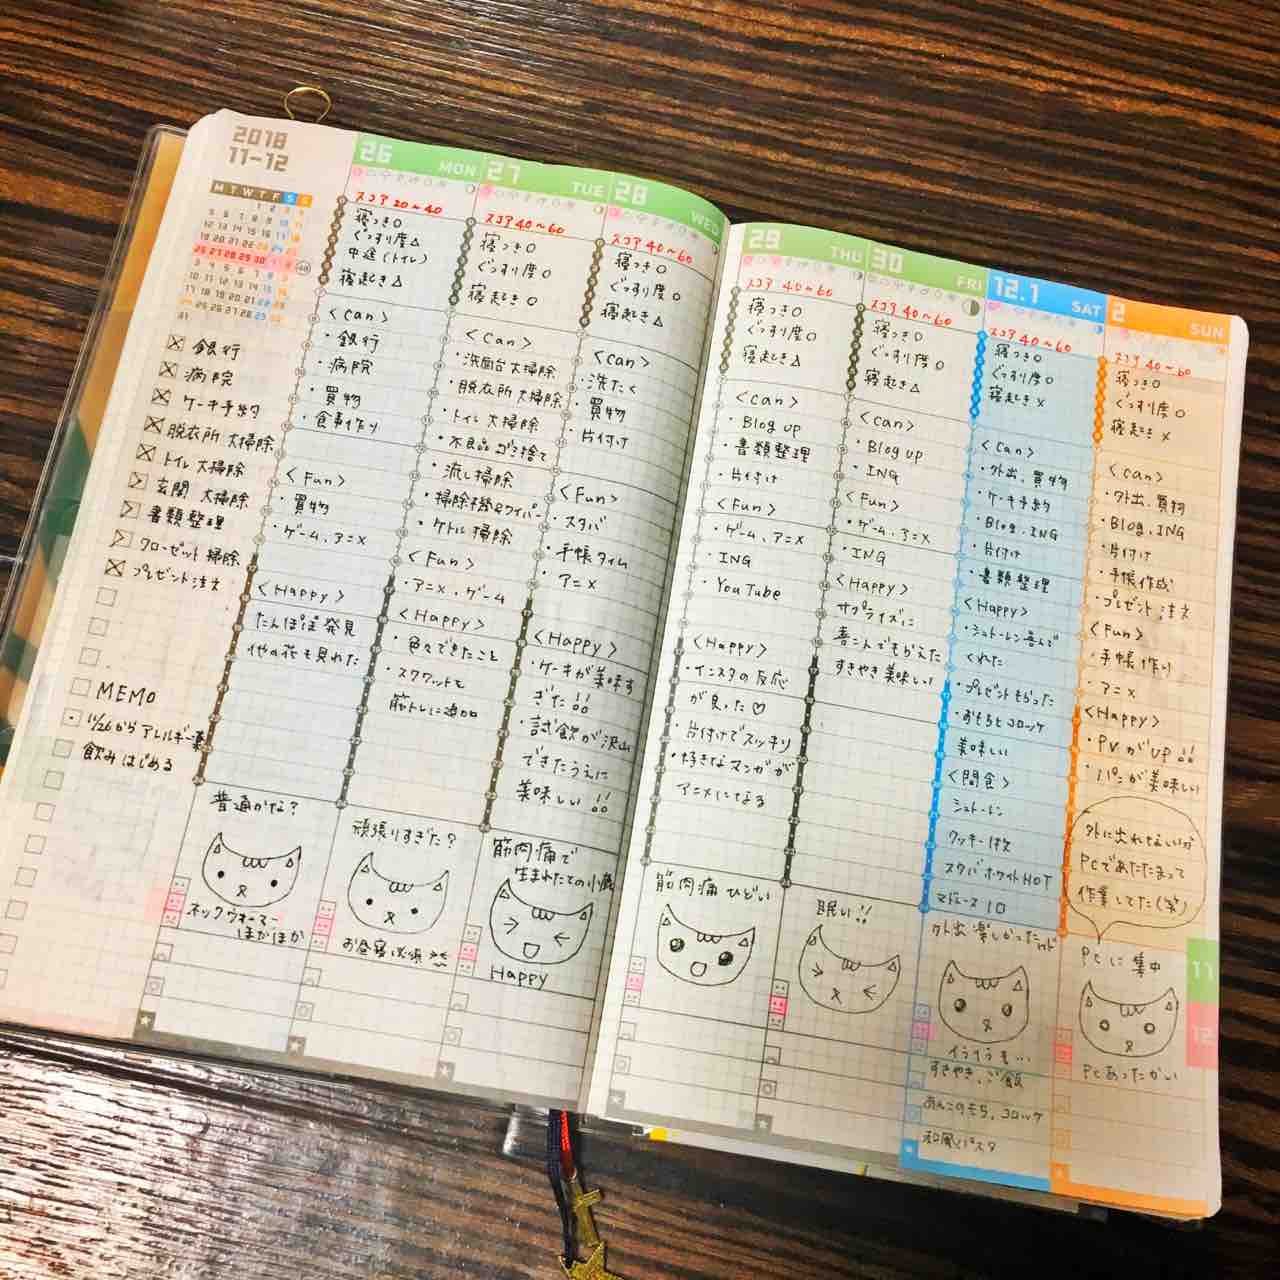 2018
11-12
M T W T F S S
銀行
病院
ケーキ予約
脱衣所 大掃除
トイレ 大掃除
玄関 大掃除
書類整理
クローゼット 掃除
プレゼント注文
MEMO
・11/26から アレルギー薬
飲みはじめる
26 MON
スコア 20～40
寝つき○
ぐっすり度△
中途(トイレ)
寝起き△
<Can>
・銀行
・病院
・買物
・食事作り
<Fun>
・買物
・ゲーム、アニメ
<Happy>
たんぽぽ発見
他の花も見れた
普通かな?
ネックウォーマー
ほかほか
27 TUE
スコア 40～60
寝つき○
ぐっすり度○
寝起き○
<Can>
・洗面台大掃除
・脱衣所 大掃除
・トイレ 大掃除
・不良品 ゴミ捨て
・流し掃除
・掃除機&ワイパー
・ケトル 掃除
<Fun>
・アニメ、ゲーム
<Happy>
・色々できたこと
・スクワットを
筋トレに追加
頑張りすぎた?
お昼寝必須
28 WED
スコア 40～60
寝つき○
ぐっすり度○
寝起き△
<Can>
・洗たく
・買物
・片付け
<Fun>
・スタバ
・手帳タイム
・アニメ
<Happy>
・ケーキが美味す
ぎた!!
・試飲が沢山
できたうえに
美味しい!!
筋肉痛で
生まれたての小鹿
Happy
29 THU
スコア 40～60
寝つき○
ぐっすり度○
寝起き△
<Can>
・Blog up
・書類整理
・片付け
<Fun>
・ゲーム、アニメ
・ING
・YouTube
<Happy>
・インスタの反応
が良った♡
・片付けでスッキリ
・好きなマンガが
アニメになる
筋肉痛 ひどい
30 FRI
スコア 40～60
寝つき○
ぐっすり度○
寝起き△
<Can>
・Blog up
・ING
<Fun>
・ゲーム、アニメ
・ING
<Happy>
サプライズに
喜こんでもらえた
すきやき美味しい
眠い!!
12.1 SAT
スコア 40～60
寝つき○
ぐっすり度○
寝起き×
<Can>
・外出、買物
・ケーキ予約
・Blog、ING
・片付け
・書類整理
<Happy>
・シュトーレン喜んで
くれた
・プレゼントもらった
・おもちとコロッケ
美味しい
<間食>
シュトーレン
クッキー1枚
スタバ ホワイトHOT
マドレーヌ 10
外出 楽しかったけど
イライラも…
すきやき、ご飯
あんこのもち、コロッケ
和風パスタ
2 SUN
スコア 40～60
寝つき○
ぐっすり度○
寝起き×
<Can>
・外出、買物
・Blog、ING
・片付け
・手帳作成
・プレゼント注文
<Fun>
・手帳作り
・アニメ
<Happy>
・PVがUP!!
・パンが美味しい
外に出れない分
PCであたたまって
作業してた(笑)
PCに集中
PCあったかい
11
12